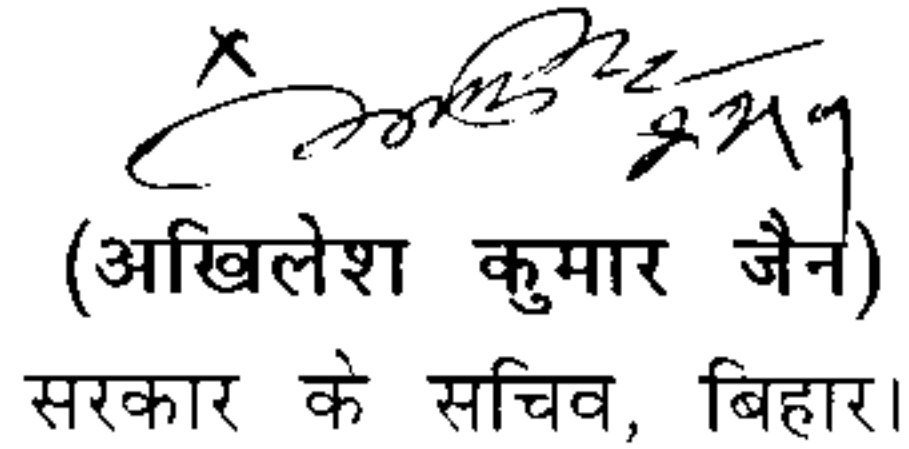 (अखिलेश कुमार जैन)
सरकार के सचिव, बिहार।